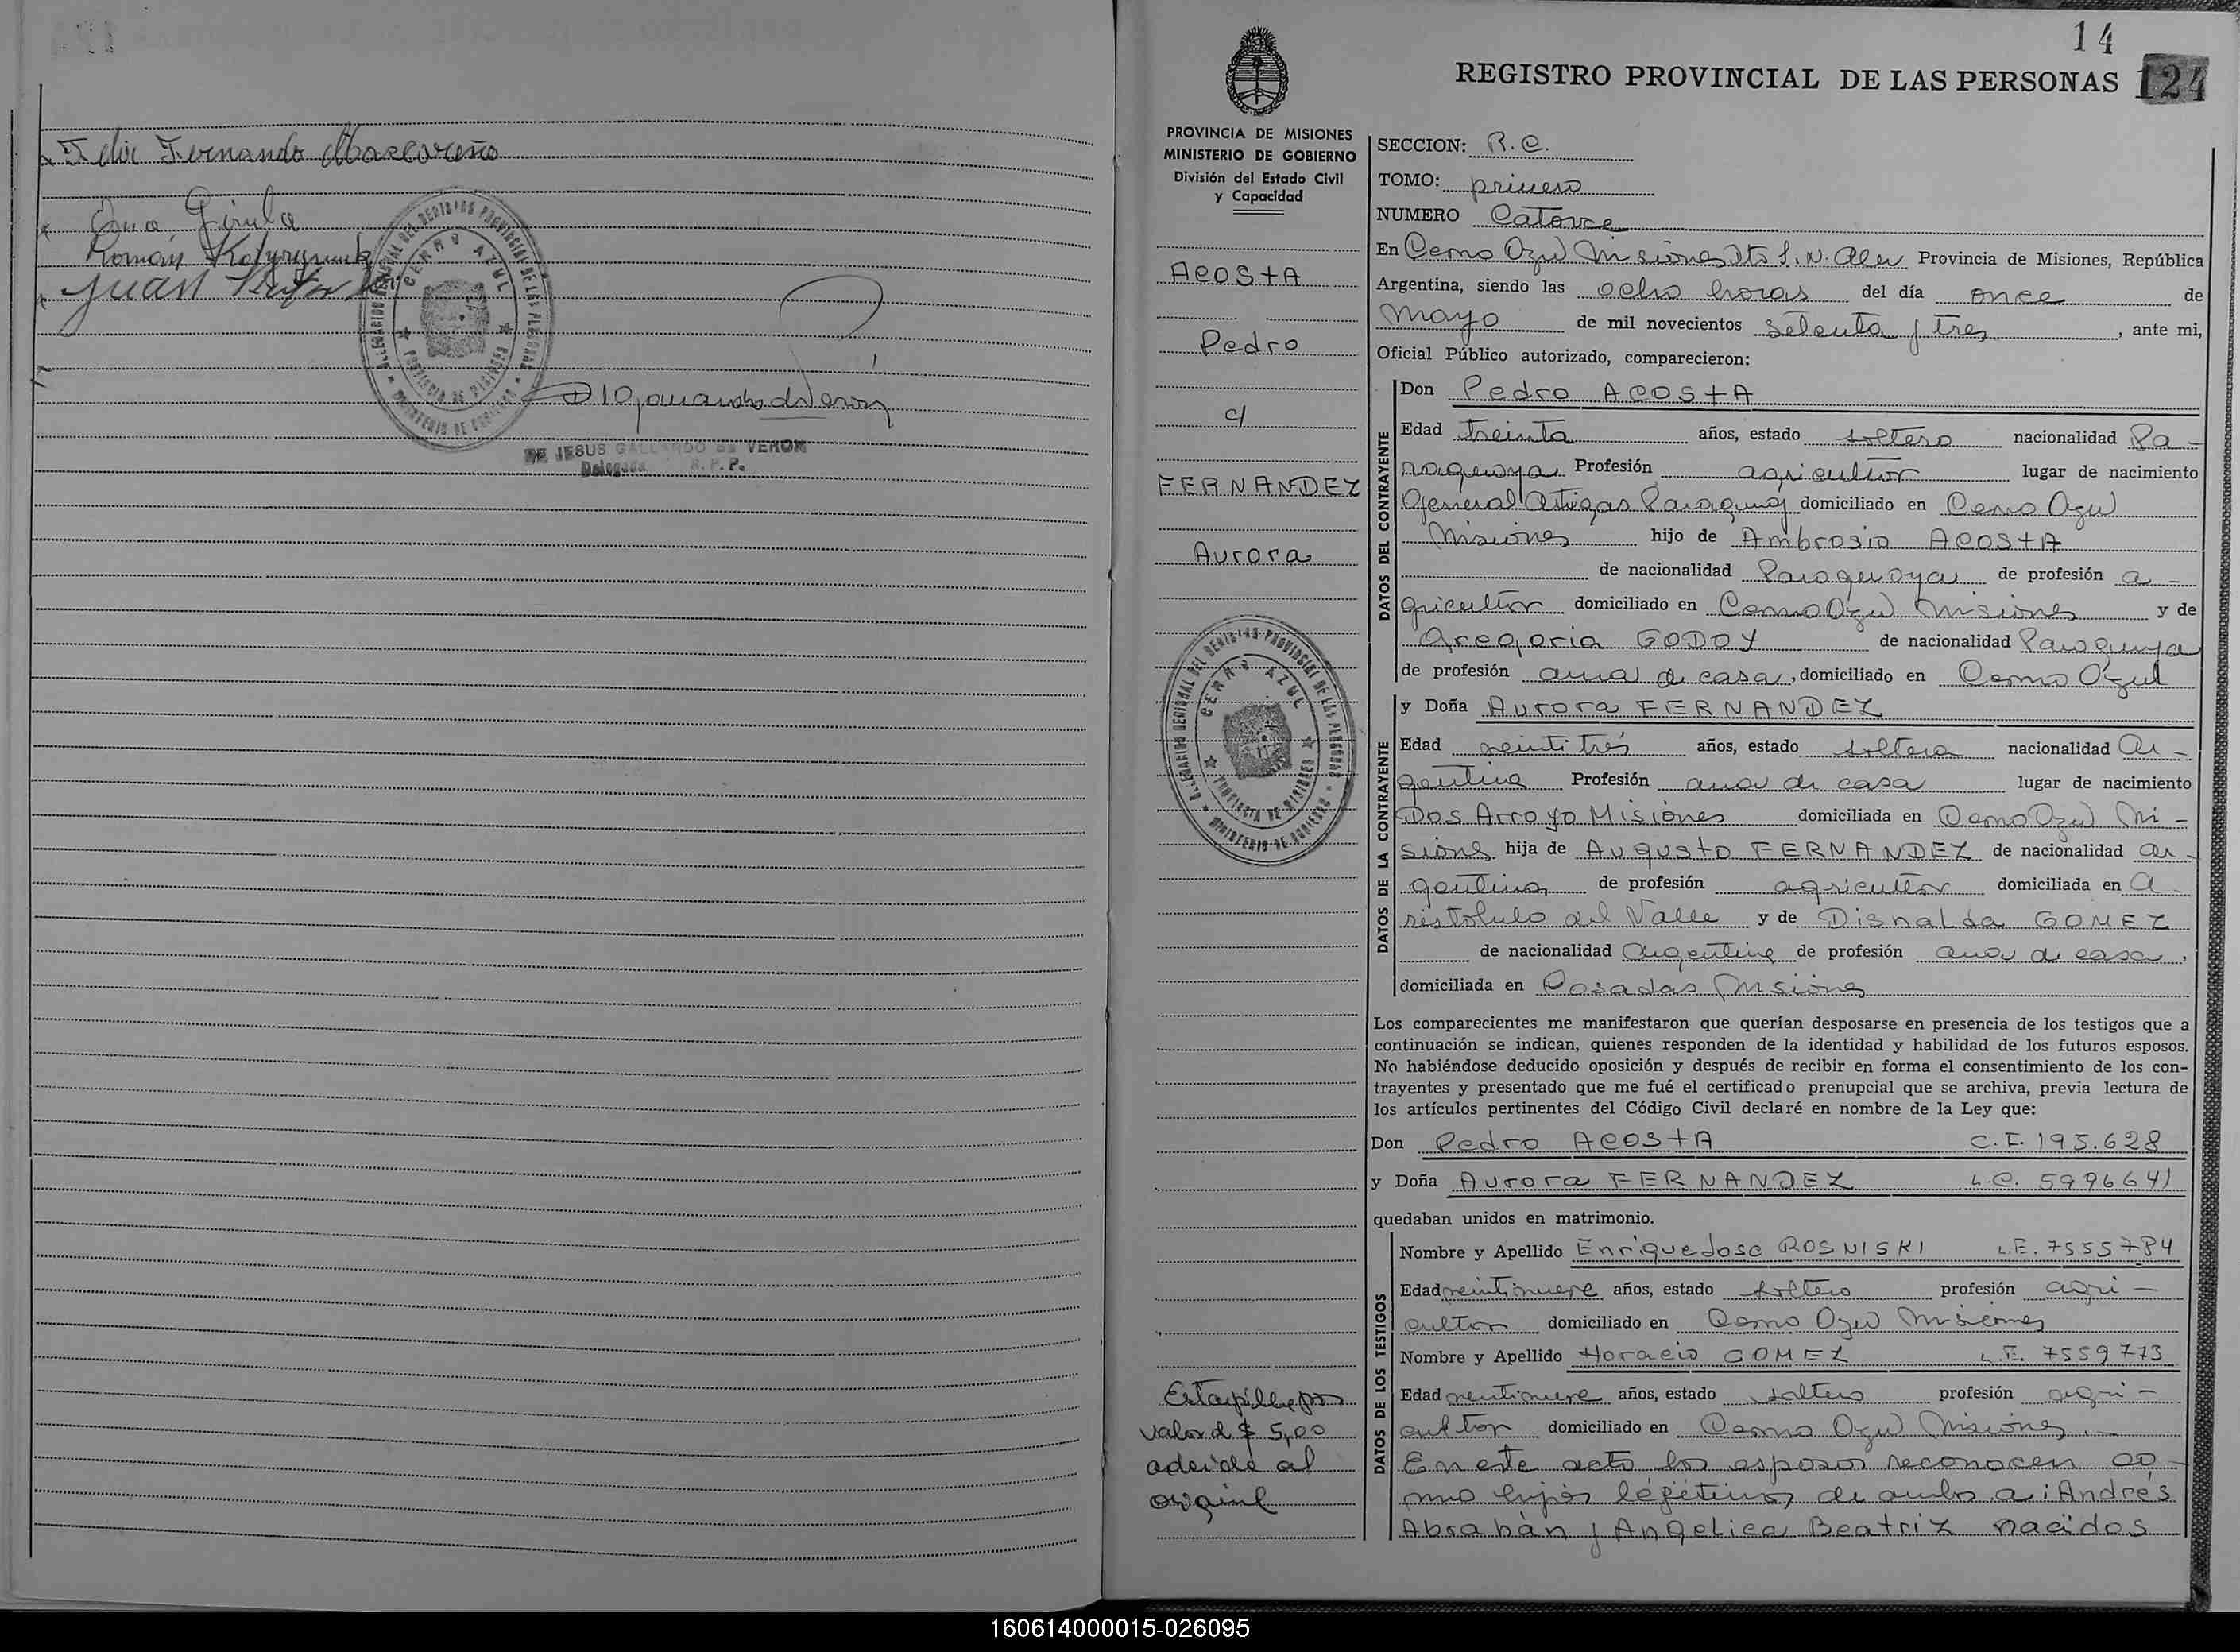 Felix Fernando Mascareño
Ana Girula
Román
Juan
CERRO AZUL
PROVINCIA DE MISIONES
DE JESUS GALLARDO DE VERON
Delegada R. P. P.
14
REGISTRO PROVINCIAL DE LAS PERSONAS 124
PROVINCIA DE MISIONES
MINISTERIO DE GOBIERNO
División del Estado Civil
y Capacidad
ACOSTA
Pedro
c/
FERNANDEZ
Aurora
CERRO AZUL
PROVINCIA DE MISIONES
Estampilla por
valor d $ 5,00
aderida al
original
SECCION: R.C.
TOMO: primero
NUMERO Catorce
En Cerro Azul Misiones Dto L.N. Alem Provincia de Misiones, República
Argentina, siendo las ocho horas del día once de
Mayo de mil novecientos setenta y tres, ante mi,
Oficial Público autorizado, comparecieron:
DATOS DEL CONTRAYENTE
Don Pedro ACOSTA
Edad treinta años, estado soltero nacionalidad Pa-
raguaya Profesión agricultor lugar de nacimiento
General Artigas Paraguay domiciliado en Cerro Azul
Misiones hijo de Ambrosio ACOSTA
de nacionalidad Paraguaya de profesión a-
gricultor domiciliado en Cerro Azul Misiones y de
Gregoria GODOY de nacionalidad Paraguaya
de profesión ama de casa, domiciliado en Cerro Azul
DATOS DE LA CONTRAYENTE
y Doña Aurora FERNANDEZ
Edad veintitrés años, estado soltera nacionalidad Ar-
gentina Profesión ama de casa lugar de nacimiento
Dos Arroyo Misiones domiciliada en Cerro Azul Mi-
siones hija de Augusto FERNANDEZ de nacionalidad ar-
gentina, de profesión agricultor domiciliada en A-
ristobulo del Valle y de Disnalda GOMEZ
de nacionalidad Argentina de profesión ama de casa,
domiciliada en Posadas Misiones
Los comparecientes me manifestaron que querían desposarse en presencia de los testigos que a
continuación se indican, quienes responden de la identidad y habilidad de los futuros esposos.
No habiéndose deducido oposición y después de recibir en forma el consentimiento de los con-
trayentes y presentado que me fué el certificado prenupcial que se archiva, previa lectura de
los artículos pertinentes del Código Civil declaré en nombre de la Ley que:
Don Pedro ACOSTA C.I. 195.628
y Doña Aurora FERNANDEZ L.C. 5996641
quedaban unidos en matrimonio.
DATOS DE LOS TESTIGOS
Nombre y Apellido Enrique Jose ROSNISKI L.E. 7555784
Edad veintinueve años, estado soltero profesión agri-
cultor domiciliado en Cerro Azul Misiones
Nombre y Apellido Horacio GOMEZ L.E. 7559773
Edad ventinueve años, estado soltero profesión agri-
cultor domiciliado en Cerro Azul Misiones.-
En este acto los esposos reconocen co-
mo hijos légitimos de ambos a: Andrés
Abrahán y Angelica Beatriz nacidos
160614000015-026095